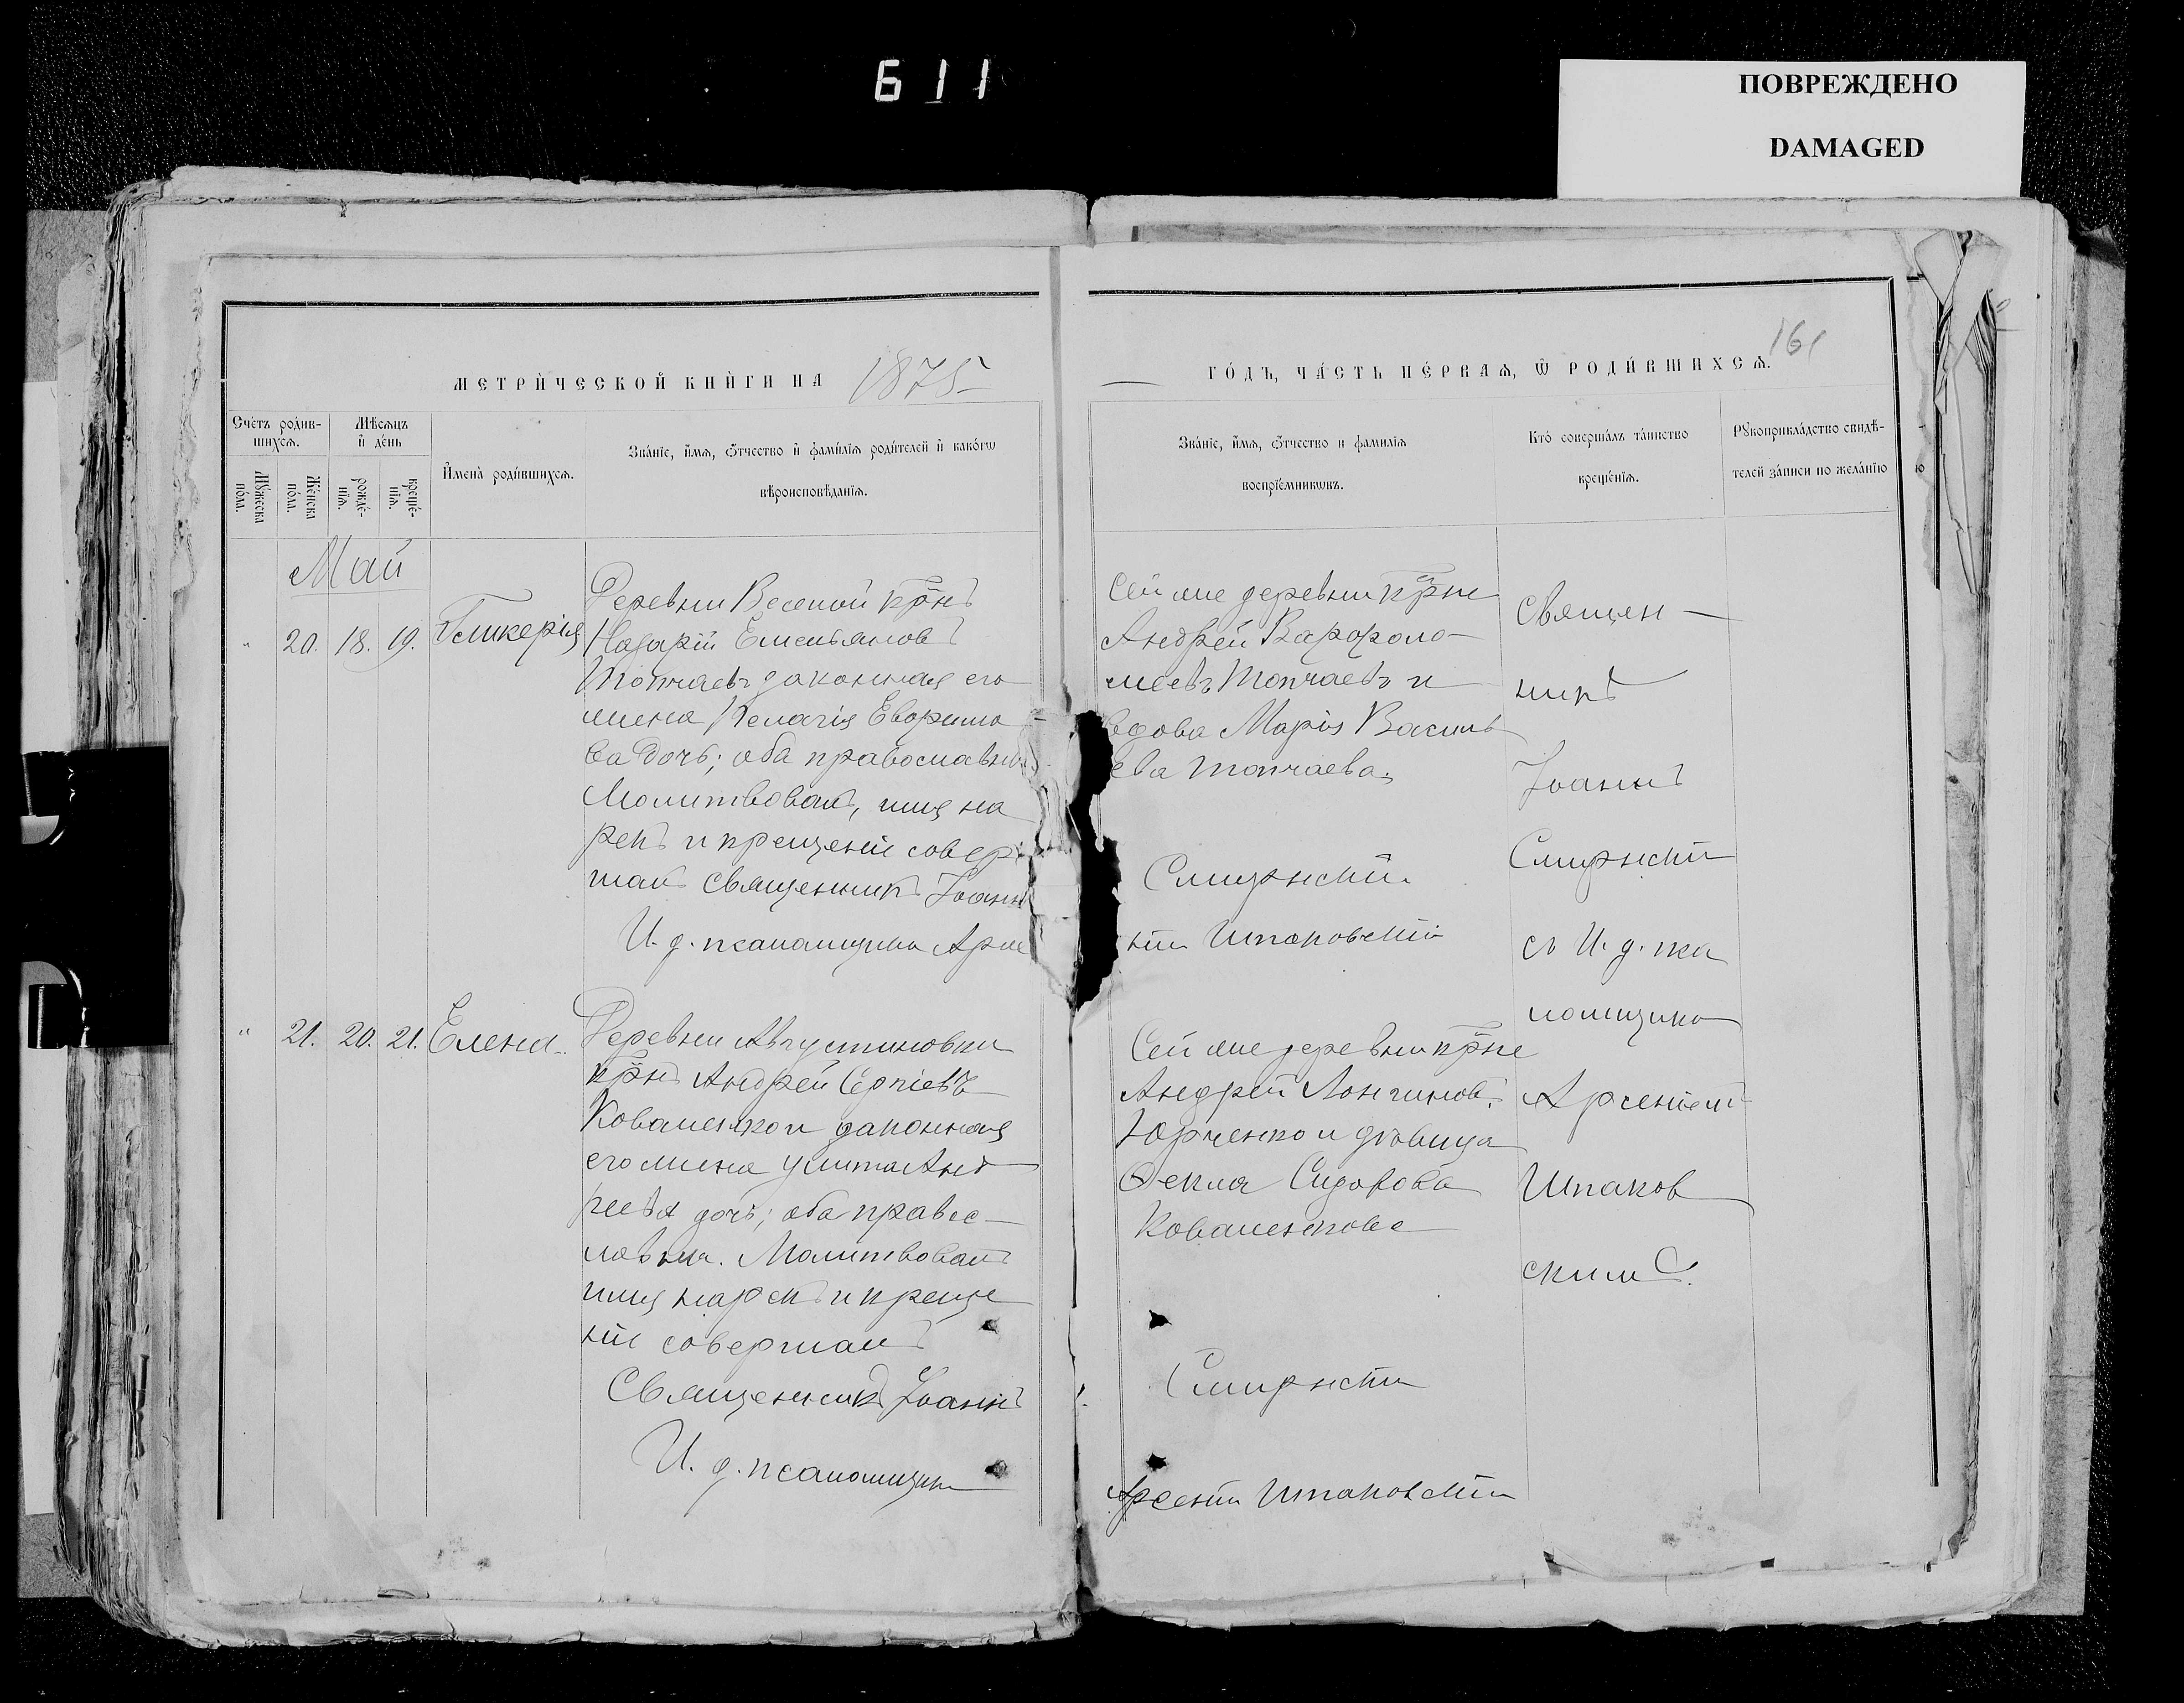 611
ПОВРЕЖДЕНО
DAMAGED
161
МЕТРИ́ЧЕСКОЙ КНИ́ГИ НА 1875
ГО́ДЪ, ЧА́СТЬ ПЕ́РВАѦ, Ѡ РОДИ́ВШИХСѦ.
Сче́тъ роди́в-
шихсѧ.
Мѣ́сѧцъ
и҆ де́нь
Мꙋ́жеска
по́ла.
Же́нска
по́ла.
рожде́-
нїѧ.
креще́-
нїѧ.
И҆мена̀ роди́вшихсѧ.
Зва́нїе, и҆́мѧ, ѻ҆́тчество и҆ фами́лїѧ роди́телей и҆ како́гѡ
вѣроисповѣ́данїѧ.
Зва́нїе, и҆́мѧ, ѻ҆́тчество и фами́лїѧ
воспрїе́мникѡвъ.
Кто̀ соверша́лъ та́инство
креще́нїѧ.
Рꙋкоприкла́дство свидѣ́-
телей за́писи по жела́нїю
Май
" 20. 18. 19. Гликерія
Деревни Веселой крнъ
Назарій Емельяновъ
Топчаевъ законная его
жена Пелагія Ефримо
ва дочь; оба православны
Молитвовалъ, имя на
рекъ и крещеніе совер
шалъ Священникъ Іоаннъ
И. д. псаломщика Арсе
Сей же деревни крне
Андрей Варфоло-
меевъ Топчаевъ и
вдова Марія Василь
ева Топчаева.
Смирнскій
ній Шпаковскій
Священ-
никъ
Іоаннъ
Смирнскій
съ И. д. пса
ломщика
Арсеніемъ
Шпаков
скимъ.
" 21. 20. 21. Елена.
Деревни Августиновки
крнъ Андрей Сергіевъ
Коваленко и законная
его жена Улита Анд
реева дочь; оба правос-
лавны. Молитвовалъ
имя нарекъ и креще
ніе совершалъ
Священникъ Іоаннъ
И. д. псаломщика
Сей же деревни крне
Андрей Лонгиновъ
Юрченко и дѣвица
Ѳекла Сидорова
Коваленкова
Смирнскій
Арсеній Шпаковскій